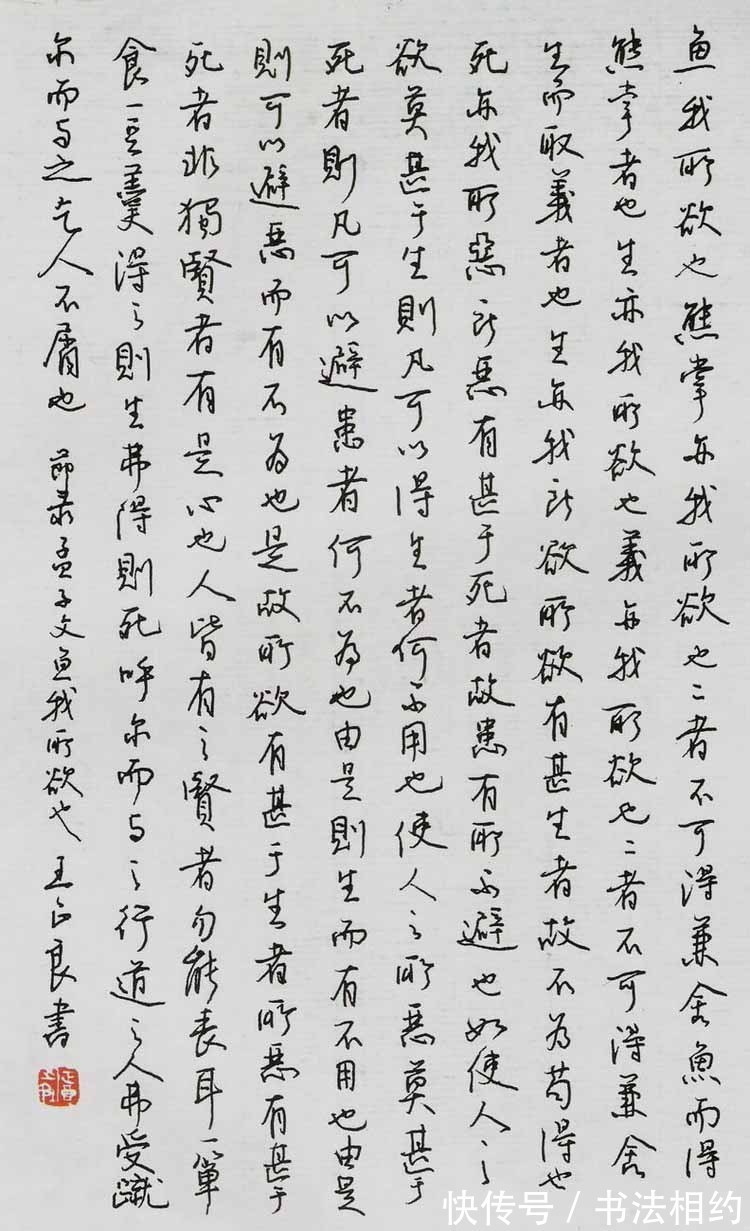 魚我所欲也熊掌亦我所欲也二者不可得兼舍魚而得
熊掌者也生亦我所欲也義亦我所欲也二者不可得兼舍
生而取義者也生亦我所欲所欲有甚生者故不为苟得也
死亦我所惡所惡有甚于死者故患有所不避也如使人之
欲莫甚于生則凡可以得生者何不用也使人之所惡莫甚于
死者則凡可以避患者何不为也由是則生而有不用也由是
則可以避惡而有不为也是故所欲有甚于生者所惡有甚于
死者非獨賢者有是心也人皆有之賢者勿能丧耳一簞
食一豆羹得之則生弗得則死呼尔而与之行道之人弗受蹴
尔而与之乞人不屑也 節录孟子文魚我所欲也 王正良書
快传号 / 书法相约